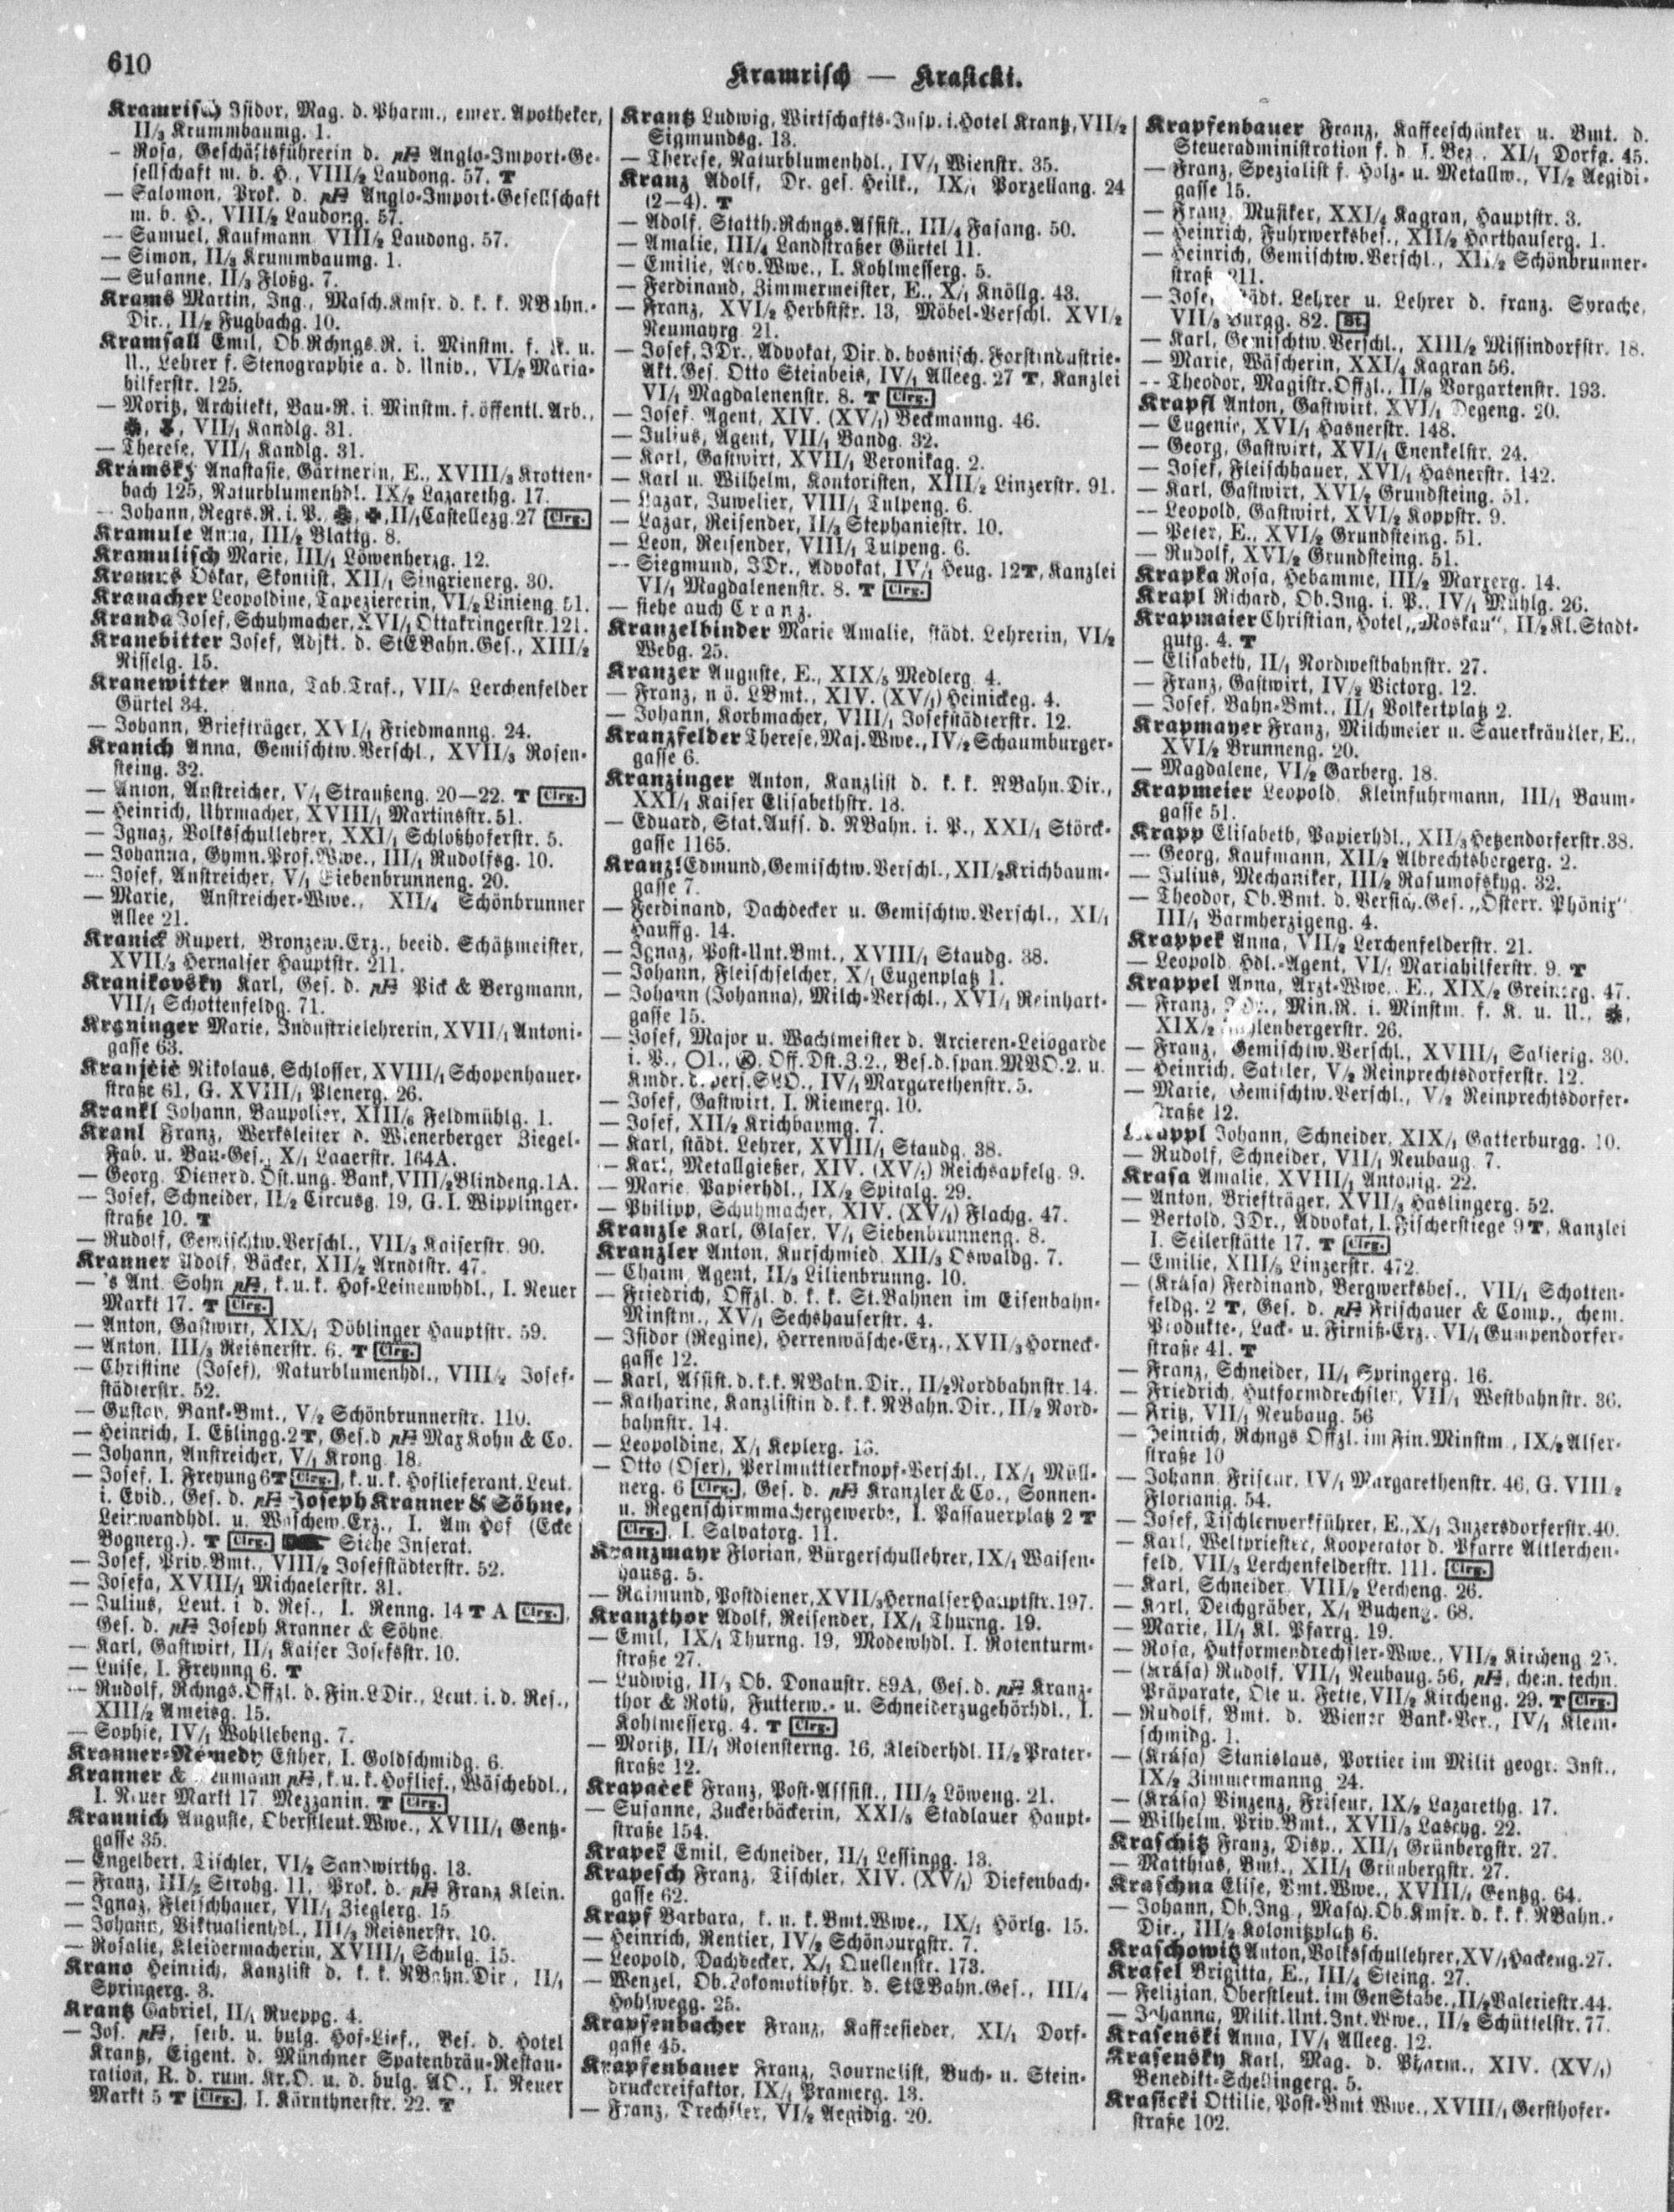 610
Kramrisch — Krasicki.
Kramrisch Isidor, Mag. d. Pharm., emer. Apotheker,
II/3 Krummbaumg. 1.
– Rosa, Geschäftsführerin d. pH Anglo-Import-Ge-
sellschaft m. b. H., VIII/2 Laudong. 57. T
— Salomon, Prok. d. pH Anglo-Import-Gesellschaft
m. b. H., VIII/2 Laudong. 57.
— Samuel, Kaufmann VIII/2 Laudong. 57.
— Simon, II/3 Krummbaumg. 1.
— Susanne, II/3 Floßg. 7.
Krams Martin, Ing., Masch.Kmsr. d. k. k. NBahn.-
Dir., II/2 Fugbachg. 10.
Kramsall Emil, Ob.Rchngs.R. i. Minstm. f. K. u.
U., Lehrer f. Stenographie a. d. Univ., VI/2 Maria-
hilferstr. 125.
— Moritz, Architekt, Bau-R. i. Minstm. f. öffentl. Arb.,
VII/1 Kandlg. 31.
— Therese, VII/1 Kandlg. 31.
Krámský Anastasie, Gärtnerin, E., XVIII/3 Krotten-
bach 125, Naturblumenhdl. IX/2 Lazarethg. 17.
— Johann, Regrs.R. i. P., II/1 Castellezg. 27 Clrg.
Kramule Anna, III/2 Blattg. 8.
Kramulisch Marie, III/1 Löwenherzg. 12.
Kramus Oskar, Skontist, XII/1 Singrienerg. 30.
Kranacher Leopoldine, Tapeziererin, VI/2 Linieng. 51.
Kranda Josef, Schuhmacher, XVI/1 Ottakringerstr. 121.
Kranebitter Josef, Adjkt. d. StEBahn.Ges., XIII/2
Nisselg. 15.
Kranewitter Anna, Tab.Traf., VII/ Lerchenfelder
Gürtel 34.
— Johann, Briefträger, XVI/1 Friedmanng. 24.
Kranich Anna, Gemischtw.Verschl., XVII/3 Rosen-
steing. 32.
— Anton, Anstreicher, V/1 Straußeng. 20—22. T Clrg.
— Heinrich, Uhrmacher, XVIII/1 Martinsstr. 51.
— Ignaz, Volksschullehrer, XXI/1 Schloßhoferstr. 5.
— Johanna, Gymn.Prof.Wwe., III/1 Rudolfsg. 10.
— Josef, Anstreicher, V/1 Siebenbrunneng. 20.
— Marie, Anstreicher-Wwe., XII/4 Schönbrunner
Allee 21.
Kranick Rupert, Bronzew.Erz., beeid. Schätzmeister,
XVII/3 Hernalser Hauptstr. 211.
Kranikovsky Karl, Ges. d. pH Pick & Bergmann,
VII/1 Schottenfeldg. 71.
Kraninger Marie, Industrielehrerin, XVII/1 Antoni-
gasse 63.
Kranjčić Nikolaus, Schlosser, XVIII/1 Schopenhauer-
straße 61, G. XVIII/1 Plenerg. 26.
Krankl Johann, Baupolier, XIII/6 Feldmühlg. 1.
Kranl Franz, Werksleiter d. Wienerberger Ziegel-
Fab. u. Bau-Ges., X/1 Laaerstr. 164A.
— Georg, Diener d. Öst.ung. Bank, VIII/2 Blindeng. 1A.
— Josef, Schneider, II/2 Circusg. 19, G. I. Wipplinger-
straße 10. T
— Rudolf, Gemischtw.Verschl., VII/3 Kaiserstr. 90.
Kranner Adolf, Bäcker, XII/2 Arndtstr. 47.
— 's Ant. Sohn pH, k. u. k. Hof-Leinenwhdl., I. Neuer
Markt 17. T Clrg.
— Anton, Gastwirt, XIX/1 Döblinger Hauptstr. 59.
— Anton, III/3 Reisnerstr. 6. T Clrg.
— Christine (Josef), Naturblumenhdl., VIII/2 Josef-
städterstr. 52.
— Gustav, Bank-Bmt., V/2 Schönbrunnerstr. 110.
— Heinrich, I. Eßlingg. 2 T, Ges. d pH Max Kohn & Co.
— Johann, Anstreicher, V/1 Krong. 18.
— Josef, I. Freyung 6 T Clrg., k. u. k. Hoflieferant, Leut.
i. Evid., Ges. d. pH Joseph Kranner & Söhne,
Leinwandhdl. u. Wäschew.Erz., I. Am Hof (Ecke
Bognerg.). T Clrg. Siehe Inserat.
— Josef, Priv.Bmt., VIII/2 Josefstädterstr. 52.
— Josefa, XVIII/1 Michaelerstr. 31.
— Julius, Leut. i d. Res., I. Renng. 14 T A Clrg.,
Ges. d. pH Joseph Kranner & Söhne.
— Karl, Gastwirt, II/1 Kaiser Josefsstr. 10.
— Luise, I. Freyung 6. T
— Rudolf, Rchngs.Offzl. d. Fin.LDir., Leut. i. d. Res.,
XIII/2 Ameisg. 15.
— Sophie, IV/1 Wohllebeng. 7.
Kranner-Némedy Esther, I. Goldschmidg. 6.
Kranner & Neumann pH, k. u. k. Hoflief., Wäschehdl.,
I. Neuer Markt 17. Mezzanin. T Clrg.
Krannich Auguste, Oberstleut.Wwe., XVIII/1 Gentz-
gasse 35.
— Engelbert, Tischler, VI/2 Sandwirthg. 13.
— Franz, III/2 Strohg. 11, Prok. d. pH Franz Klein.
— Ignaz, Fleischhauer, VII/1 Zieglerg. 15
— Johann, Viktualienhdl., III/3 Reisnerstr. 10.
— Rosalie, Kleidermacherin, XVIII/1 Schulg. 15.
Krano Heinrich, Kanzlist d. k. k. NBahn.Dir, II/1
Springerg. 3.
Krantz Gabriel, II/1 Rueppg. 4.
— Jos. pH, serb. u. bulg. Hof-Lief., Bes. d. Hotel
Krantz, Eigent. d. Münchner Spatenbräu-Restau-
ration, R. d. rum. Kr.O. u. d. bulg. AO., I. Neuer
Markt 5 T Clrg., I. Kärnthnerstr. 22. T
Krantz Ludwig, Wirtschafts-Insp. i. Hotel Krantz, VII/2
Sigmundsg. 13.
— Therese, Naturblumenhdl., IV/1 Wienstr. 35.
Kranz Adolf, Dr. ges. Heilk., IX/1 Porzellang. 24
(2—4). T
— Adolf, Statth.Rchngs.Assist., III/4 Fasang. 50.
— Amalie, III/4 Landstraßer Gürtel 11.
— Emilie, Adv.Wwe., I. Kohlmesserg. 5.
— Ferdinand, Zimmermeister, E., X/1 Knöllg. 43.
— Franz, XVI/2 Herbststr. 13, Möbel-Verschl. XVI/2
Neumayrg. 21.
— Josef, JDr., Advokat, Dir. d. bosnisch. Forstindustrie-
Akt.Ges. Otto Steinbeis, IV/1 Alleeg. 27 T, Kanzlei
VI/1 Magdalenenstr. 8. T Clrg.
— Josef, Agent, XIV. (XV/1) Beckmanng. 46.
— Julius, Agent, VII/1 Bandg. 32.
— Karl, Gastwirt, XVII/1 Veronikag. 2.
— Karl u. Wilhelm, Kontoristen, XIII/2 Linzerstr. 91.
— Lazar, Juwelier, VIII/1 Tulpeng. 6.
— Lazar, Reisender, II/3 Stephaniestr. 10.
— Leon, Reisender, VIII/1 Tulpeng. 6.
— Siegmund, JDr., Advokat, IV/1 Heug. 12 T, Kanzlei
VI/1 Magdalenenstr. 8. T Clrg.
— siehe auch Cranz.
Kranzelbinder Marie Amalie, städt. Lehrerin, VI/2
Webg. 25.
Kranzer Auguste, E., XIX/5 Medlerg. 4.
— Franz, n ö. LBmt., XIV. (XV/1) Heinickeg. 4.
— Johann, Korbmacher, VIII/1 Josefstädterstr. 12.
Kranzfelder Therese, Maj.Wwe., IV/2 Schaumburger-
gasse 6.
Kranzinger Anton, Kanzlist d. k. k. NBahn.Dir.,
XXI/1 Kaiser Elisabethstr. 18.
— Eduard, Stat.Aufs. d. NBahn. i. P., XXI/1 Störck-
gasse 1165.
Kranzl Edmund, Gemischtw.Verschl., XII/2 Krichbaum-
gasse 7.
— Ferdinand, Dachdecker u. Gemischtw.Verschl., XI/1
Hauffg. 14.
— Ignaz, Post-Unt.Bmt., XVIII/1 Staudg. 38.
— Johann, Fleischselcher, X/1 Eugenplatz 1.
— Johann (Johanna), Milch-Verschl., XVI/1 Reinhart-
gasse 15.
— Josef, Major u. Wachtmeister d. Arcieren-Leibgarde
i. P., Off.Dst.Z.2., Bes. d. span. MVO.2. u.
Kmdr. d. pers. SLO., IV/1 Margarethenstr. 5.
— Josef, Gastwirt, I. Riemerg. 10.
— Josef, XII/2 Krichbaumg. 7.
— Karl, städt. Lehrer, XVIII/1 Staudg. 38.
— Karl, Metallgießer, XIV. (XV/1) Reichsapfelg. 9.
— Marie, Papierhdl., IX/2 Spitalg. 29.
— Philipp, Schuhmacher, XIV. (XV/1) Flachg. 47.
Kranzle Karl, Glaser, V/1 Siebenbrunneng. 8.
Kranzler Anton, Kurschmied, XII/3 Oswaldg. 7.
— Chaim, Agent, II/3 Lilienbrunng. 10.
— Friedrich, Offzl. d. k. k. St.Bahnen im Eisenbahn-
Minstm., XV/1 Sechshauserstr. 4.
— Isidor (Regine), Herrenwäsche-Erz., XVII/3 Horneck-
gasse 12.
— Karl, Assist. d. k. k. NBahn.Dir., II/2 Nordbahnstr. 14.
— Katharine, Kanzlistin d. k. k. NBahn.Dir., II/2 Nord-
bahnstr. 14.
— Leopoldine, X/1 Keplerg. 16.
— Otto (Oser), Perlmutterknopf-Verschl., IX/1 Müll-
nerg. 6 Clrg., Ges. d. pH Kranzler & Co., Sonnen-
u. Regenschirmmachergewerbe, I. Passauerplatz 2 T
Clrg., I. Salvatorg. 11.
Kranzmayr Florian, Bürgerschullehrer, IX/1 Waisen-
hausg. 5.
— Raimund, Postdiener, XVII/3 Hernalser Hauptstr. 197.
Kranzthor Adolf, Reisender, IX/1 Thurng. 19.
— Emil, IX/1 Thurng. 19, Modewhdl. I. Rotenturm-
straße 27.
— Ludwig, II/3 Ob. Donaustr. 89A, Ges. d. pH Kranz-
thor & Roth, Futterw.- u. Schneiderzugehörhdl., I.
Kohlmesserg. 4. T Clrg.
— Moritz, II/1 Rotensterng. 16, Kleiderhdl. II/2 Prater-
straße 12.
Krapaček Franz, Post-Assist., III/2 Löweng. 21.
— Susanne, Zuckerbäckerin, XXI/5 Stadlauer Haupt-
straße 154.
Krapek Emil, Schneider, II/1 Lessingg. 13.
Krapesch Franz, Tischler, XIV. (XV/1) Diefenbach-
gasse 62.
Krapf Barbara, k. u. k. Bmt.Wwe., IX/1 Hörlg. 15.
— Heinrich, Rentier, IV/2 Schönburgstr. 7.
— Leopold, Dachdecker, X/1 Quellenstr. 173.
— Wenzel, Ob.Lokomotivfhr. d. StEBahn.Ges., III/4
Hohlwegg. 25.
Krapfenbacher Franz, Kaffeesieder, XI/1 Dorf-
gasse 45.
Krapfenbauer Franz, Journalist, Buch- u. Stein-
druckereifaktor, IX/1 Pramerg. 13.
— Franz, Drechsler, VI/2 Aegidig. 20.
Krapfenbauer Franz, Kaffeeschänker u. Bmt. d.
Steueradministration f. d. I. Bez., XI/1 Dorfg. 45.
— Franz, Spezialist f. Holz- u. Metallw., VI/2 Aegidi-
gasse 15.
— Franz, Musiker, XXI/4 Kagran, Hauptstr. 3.
— Heinrich, Fuhrwerksbes., XII/2 Harthauserg. 1.
— Heinrich, Gemischtw.Verschl., XII/2 Schönbrunner-
straße 211.
— Josef, städt. Lehrer u. Lehrer d. franz. Sprache,
VII/3 Burgg. 82. St.
— Karl, Gemischtw.Verschl., XIII/2 Missindorfstr. 18.
— Marie, Wäscherin, XXI/4 Kagran 56.
— Theodor, Magistr.Offzl., II/8 Vorgartenstr. 193.
Krapfl Anton, Gastwirt, XVI/1 Degeng. 20.
— Eugenie, XVI/1 Hasnerstr. 148.
— Georg, Gastwirt, XVI/1 Enenkelstr. 24.
— Josef, Fleischhauer, XVI/1 Hasnerstr. 142.
— Karl, Gastwirt, XVI/2 Grundsteing. 51.
— Leopold, Gastwirt, XVI/2 Koppstr. 9.
— Peter, E., XVI/2 Grundsteing. 51.
— Rudolf, XVI/2 Grundsteing. 51.
Krapka Rosa, Hebamme, III/2 Marxerg. 14.
Krapl Richard, Ob.Ing. i. P., IV/1 Mühlg. 26.
Krapmaier Christian, Hotel „Moskau", II/2 Kl. Stadt-
gutg. 4. T
— Elisabeth, II/1 Nordwestbahnstr. 27.
— Franz, Gastwirt, IV/2 Victorg. 12.
— Josef, Bahn-Bmt., II/1 Volkertplatz 2.
Krapmayer Franz, Milchmeier u. Sauerkräutler, E.,
XVI/2 Brunneng. 20.
— Magdalene, VI/2 Garberg. 18.
Krapmeier Leopold, Kleinfuhrmann, III/1 Baum-
gasse 51.
Krapp Elisabeth, Papierhdl., XII/3 Hetzendorferstr. 38.
— Georg, Kaufmann, XII/2 Albrechtsbergerg. 2.
— Julius, Mechaniker, III/2 Rasumofskyg. 32.
— Theodor, Ob.Bmt. d. Versich.Ges. „Österr. Phönix"
III/1 Barmherzigeng. 4.
Krappek Anna, VII/2 Lerchenfelderstr. 21.
— Leopold, Hdl.-Agent, VI/1 Mariahilferstr. 9. T
Krappel Anna, Arzt-Wwe., E., XIX/2 Greinerg. 47.
— Franz, JDr., Min.R. i. Minstm. f. K. u. U.,
XIX/2 Kahlenbergerstr. 26.
— Franz, Gemischtw.Verschl., XVIII/1 Salierig. 30.
— Heinrich, Sattler, V/2 Reinprechtsdorferstr. 12.
— Marie, Gemischtw.Verschl., V/2 Reinprechtsdorfer-
straße 12.
Krappl Johann, Schneider, XIX/1 Gatterburgg. 10.
— Rudolf, Schneider, VII/1 Neubaug. 7.
Krasa Amalie, XVIII/1 Antonig. 22.
— Anton, Briefträger, XVII/3 Haslingerg. 52.
— Bertold, JDr., Advokat, I. Fischerstiege 9 T, Kanzlei
I. Seilerstätte 17. T Clrg.
— Emilie, XIII/5 Linzerstr. 472.
— (Krása) Ferdinand, Bergwerksbes., VII/1 Schotten-
feldg. 2 T, Ges. d. pH Frischauer & Comp., chem.
Produkte-, Lack- u. Firniß-Erz., VI/1 Gumpendorfer-
straße 41. T
— Franz, Schneider, II/1 Springerg. 16.
— Friedrich, Hutformdrechsler, VII/1 Westbahnstr. 36.
— Fritz, VII/1 Neubaug. 56
— Heinrich, Rchngs Offzl. im Fin.Minstm., IX/2 Alser-
straße 10
— Johann, Friseur, IV/1 Margarethenstr. 46, G. VIII/2
Florianig. 54.
— Josef, Tischlerwerkführer, E., X/1 Inzersdorferstr. 40.
— Karl, Weltpriester, Kooperator d. Pfarre Altlerchen-
feld, VII/3 Lerchenfelderstr. 111. Clrg.
— Karl, Schneider, VIII/2 Lercheng. 26.
— Karl, Deichgräber, X/1 Bucheng. 68.
— Marie, II/1 Kl. Pfarrg. 19.
— Rosa, Hutformendrechsler-Wwe., VII/2 Kircheng. 25.
— (Krása) Rudolf, VII/1 Neubaug. 56, pH, chem. techn.
Präparate, Öle u. Fette, VII/2 Kircheng. 29. T Clrg.
— Rudolf, Bmt. d. Wiener Bank-Ver., IV/1 Klein-
schmidg. 1.
— (Krása) Stanislaus, Portier im Milit geogr. Inst.,
IX/2 Zimmermanng. 24.
— (Krása) Vinzenz, Friseur, IX/2 Lazarethg. 17.
— Wilhelm, Priv.Bmt., XVII/3 Lascyg. 22.
Kraschitz Franz, Disp., XII/1 Grünbergstr. 27.
— Matthias, Bmt., XII/1 Grünbergstr. 27.
Kraschna Elise, Bmt.Wwe., XVIII/1 Gentzg. 64.
— Johann, Ob.Ing., Masch.Ob.Kmsr. d. k. k. NBahn.-
Dir., III/2 Kolonitzplatz 6.
Kraschowitz Anton, Volksschullehrer, XV/1 Hackeng. 27.
Krasel Brigitta, E., III/4 Steing. 27.
— Felizian, Oberstleut. im GenStabe., II/2 Valeriestr. 44.
— Johanna, Milit.Unt.Int.Wwe., II/2 Schüttelstr. 77.
Krasenski Anna, IV/1 Alleeg. 12.
Krasensky Karl, Mag. d. Pharm., XIV. (XV/1)
Benedikt-Schellingerg. 5.
Krasicki Ottilie, Post-Bmt.Wwe., XVIII/1 Gersthofer-
straße 102.